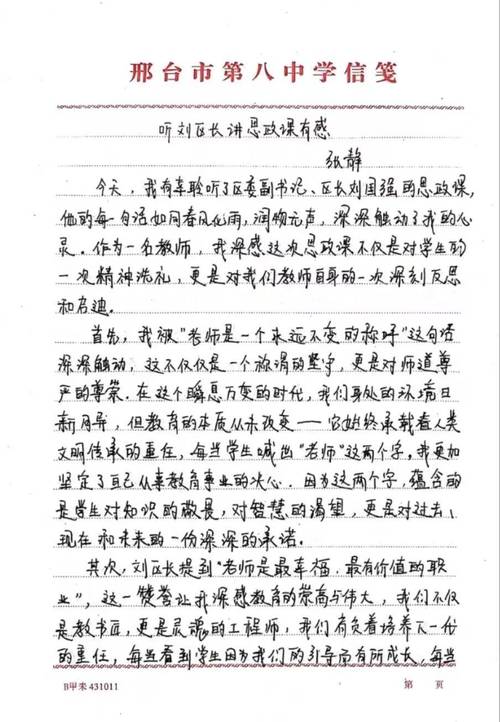 邢台市第八中学信笺
听刘区长讲思政课有感
张静
今天，我有幸聆听了区委副书记、区长刘国强的思政课，
他的每一句话如同春风化雨，润物无声，深深触动了我的心
灵。作为一名教师，我深感这次思政课不仅是对学生的
一次精神洗礼，更是对我们教师自身的一次深刻反思
和启迪。
首先，我被“老师是一个永远不变的称呼”这句话
深深触动，这不仅仅是一个称谓的坚守，更是对师道尊
严的尊崇。在这个瞬息万变的时代，我们身处的环境日
新月异，但教育的本质从未改变——它始终承载着人类
文明传承的重任，每当学生喊出“老师”这两个字，我更加
坚定了自己从事教育事业的决心。因为这两个字，蕴含的
是学生对知识的敬畏，对智慧的渴望，更是对过去、
现在和未来的一份深深的承诺。
其次，刘区长提到“老师是最幸福、最有价值的职
业”，这一赞誉让我深感教育的崇高与伟大，我们不仅
是教书匠，更是灵魂的工程师，我们肩负着培养下一代
的重任，每当看到学生因为我们的引导而有所成长，每当
B甲末431011
第 页